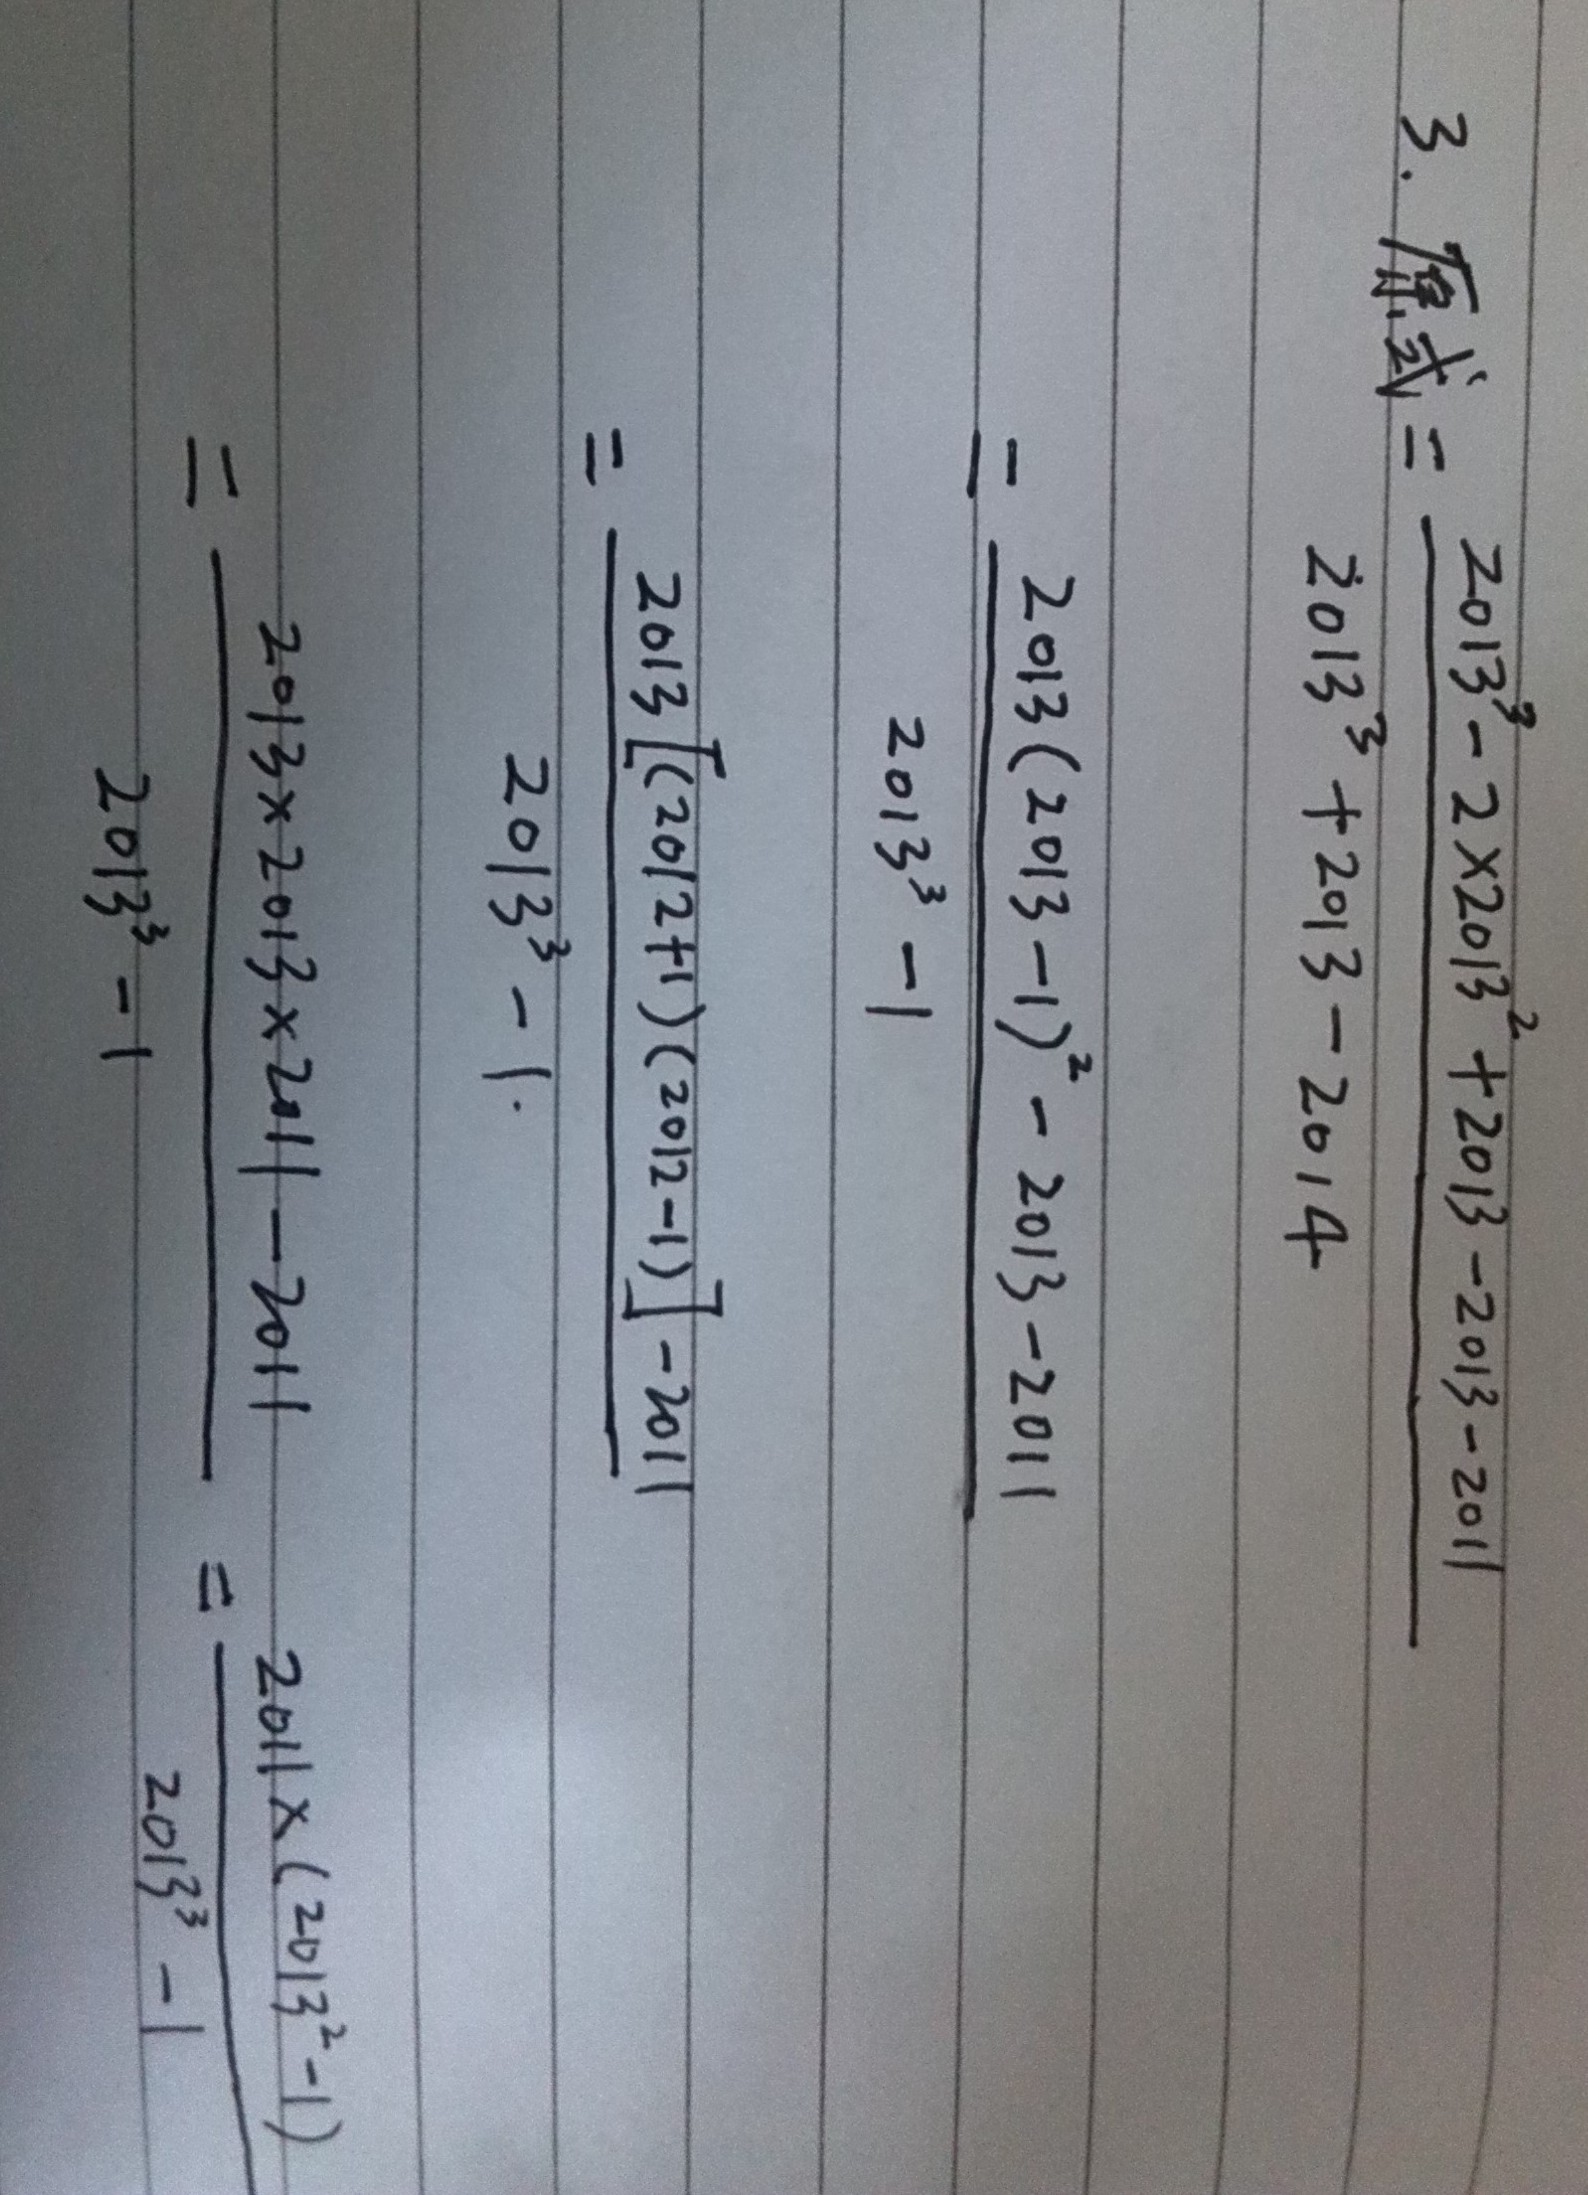 3. 原式 = 2013³ - 2×2013² + 2013 - 2013 - 2011
2013³ + 2013 - 2014
= 2013(2013-1)² - 2013 - 2011
2013³ - 1
= 2013[(2012+1)(2012-1)] - 2011
2013³ - 1.
= 2013×2013×2011 - 2011 = 2011×(2013²-1)
2013³ - 1 2013³ - 1